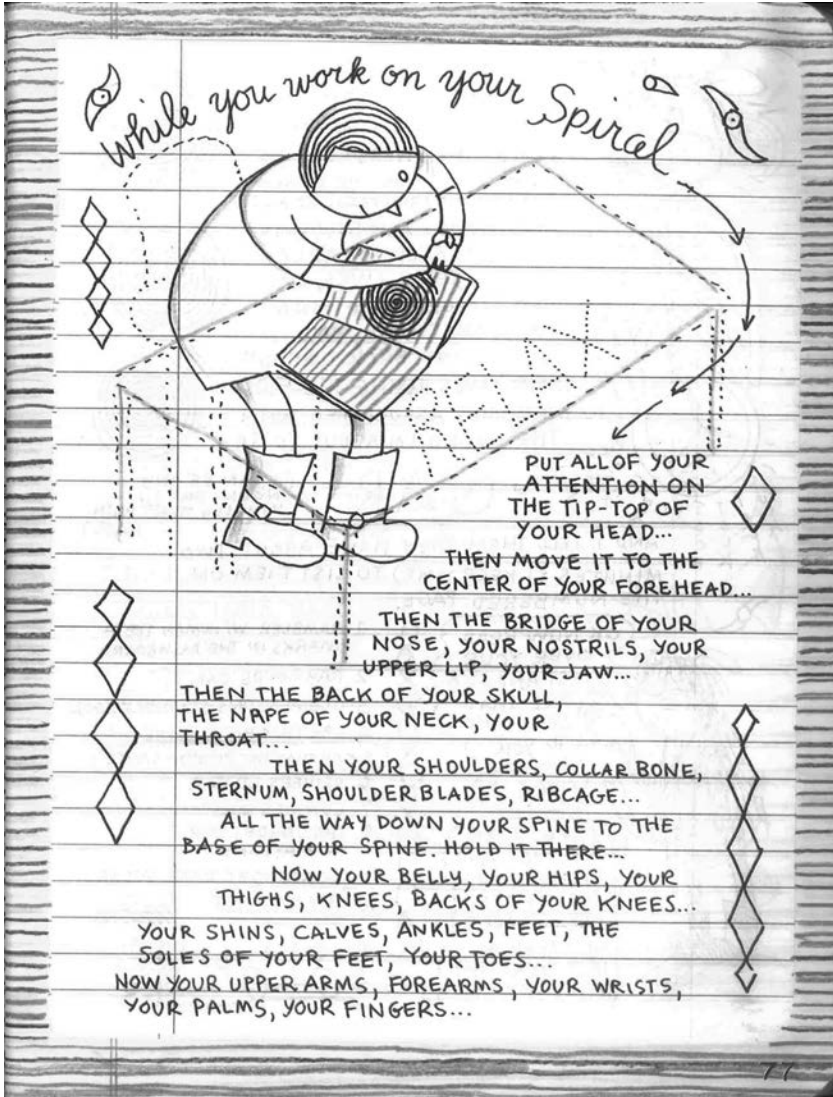 while you work on your Spiral
RELAX
PUT ALL OF YOUR
ATTENTION ON
THE TIP-TOP OF
YOUR HEAD...
THEN MOVE IT TO THE
CENTER OF YOUR FOREHEAD...
THEN THE BRIDGE OF YOUR
NOSE, YOUR NOSTRILS, YOUR
UPPER LIP, YOUR JAW...
THEN THE BACK OF YOUR SKULL,
THE NAPE OF YOUR NECK, YOUR
THROAT...
THEN YOUR SHOULDERS, COLLAR BONE,
STERNUM, SHOULDER BLADES, RIBCAGE...
ALL THE WAY DOWN YOUR SPINE TO THE
BASE OF YOUR SPINE. HOLD IT THERE...
NOW YOUR BELLY, YOUR HIPS, YOUR
THIGHS, KNEES, BACKS OF YOUR KNEES...
YOUR SHINS, CALVES, ANKLES, FEET, THE
SOLES OF YOUR FEET, YOUR TOES...
NOW YOUR UPPER ARMS, FOREARMS, YOUR WRISTS,
YOUR PALMS, YOUR FINGERS...
77